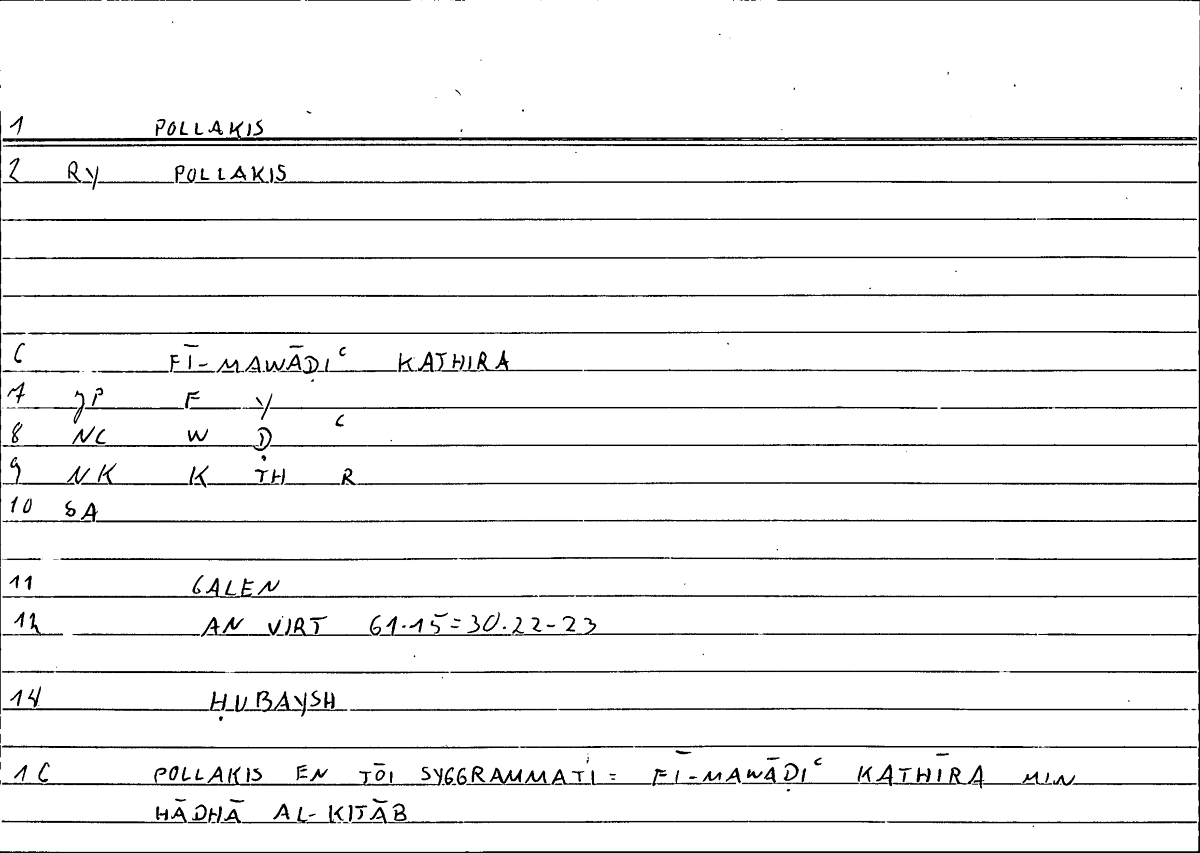 1 POLLAKIS
2 RY POLLAKIS
6 FĪ-MAWĀḌIᶜ KATHIRA
7 JP F Y
8 NC W Ḍ ᶜ
9 NK K TH R
10 SA
11 GALEN
12 AN VIRT 61.15=30.22-23
14 ḤUBAYSH
16 POLLAKIS EN TŌI SYGGRAMMATI = FĪ-MAWĀḌIᶜ KATHĪRA MIN
HĀDHĀ AL-KITĀB